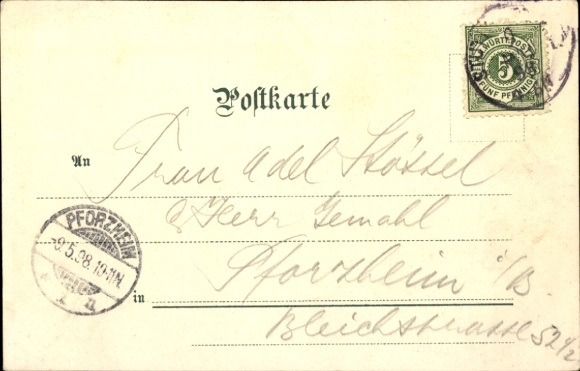 K. WÜRTT. POST
5
FÜNF PFENNIG
Postkarte
An Frau Adel Stössel
& Herr Gemahl
Pforzheim i/B.
in
Bleichstrasse 52 1/2
PFORZHEIM
9.5.98.10-11N.